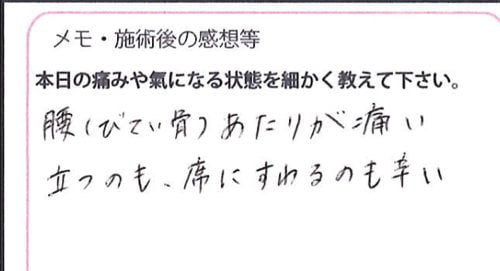 メモ・施術後の感想等
本日の痛みや氣になる状態を細かく教えて下さい。
腰(びてい骨)あたりが痛い
立つのも、席にすわるのも辛い